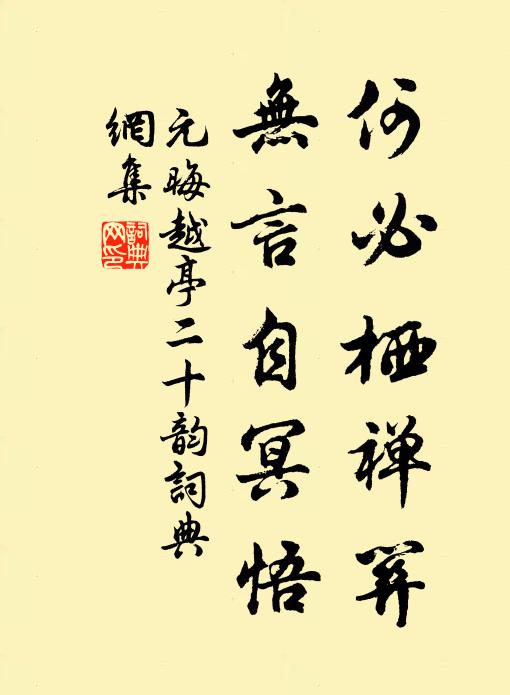 何必栖禅關
無言自冥悟
元晦越亭二十韵詞典
網集
詞典
网印